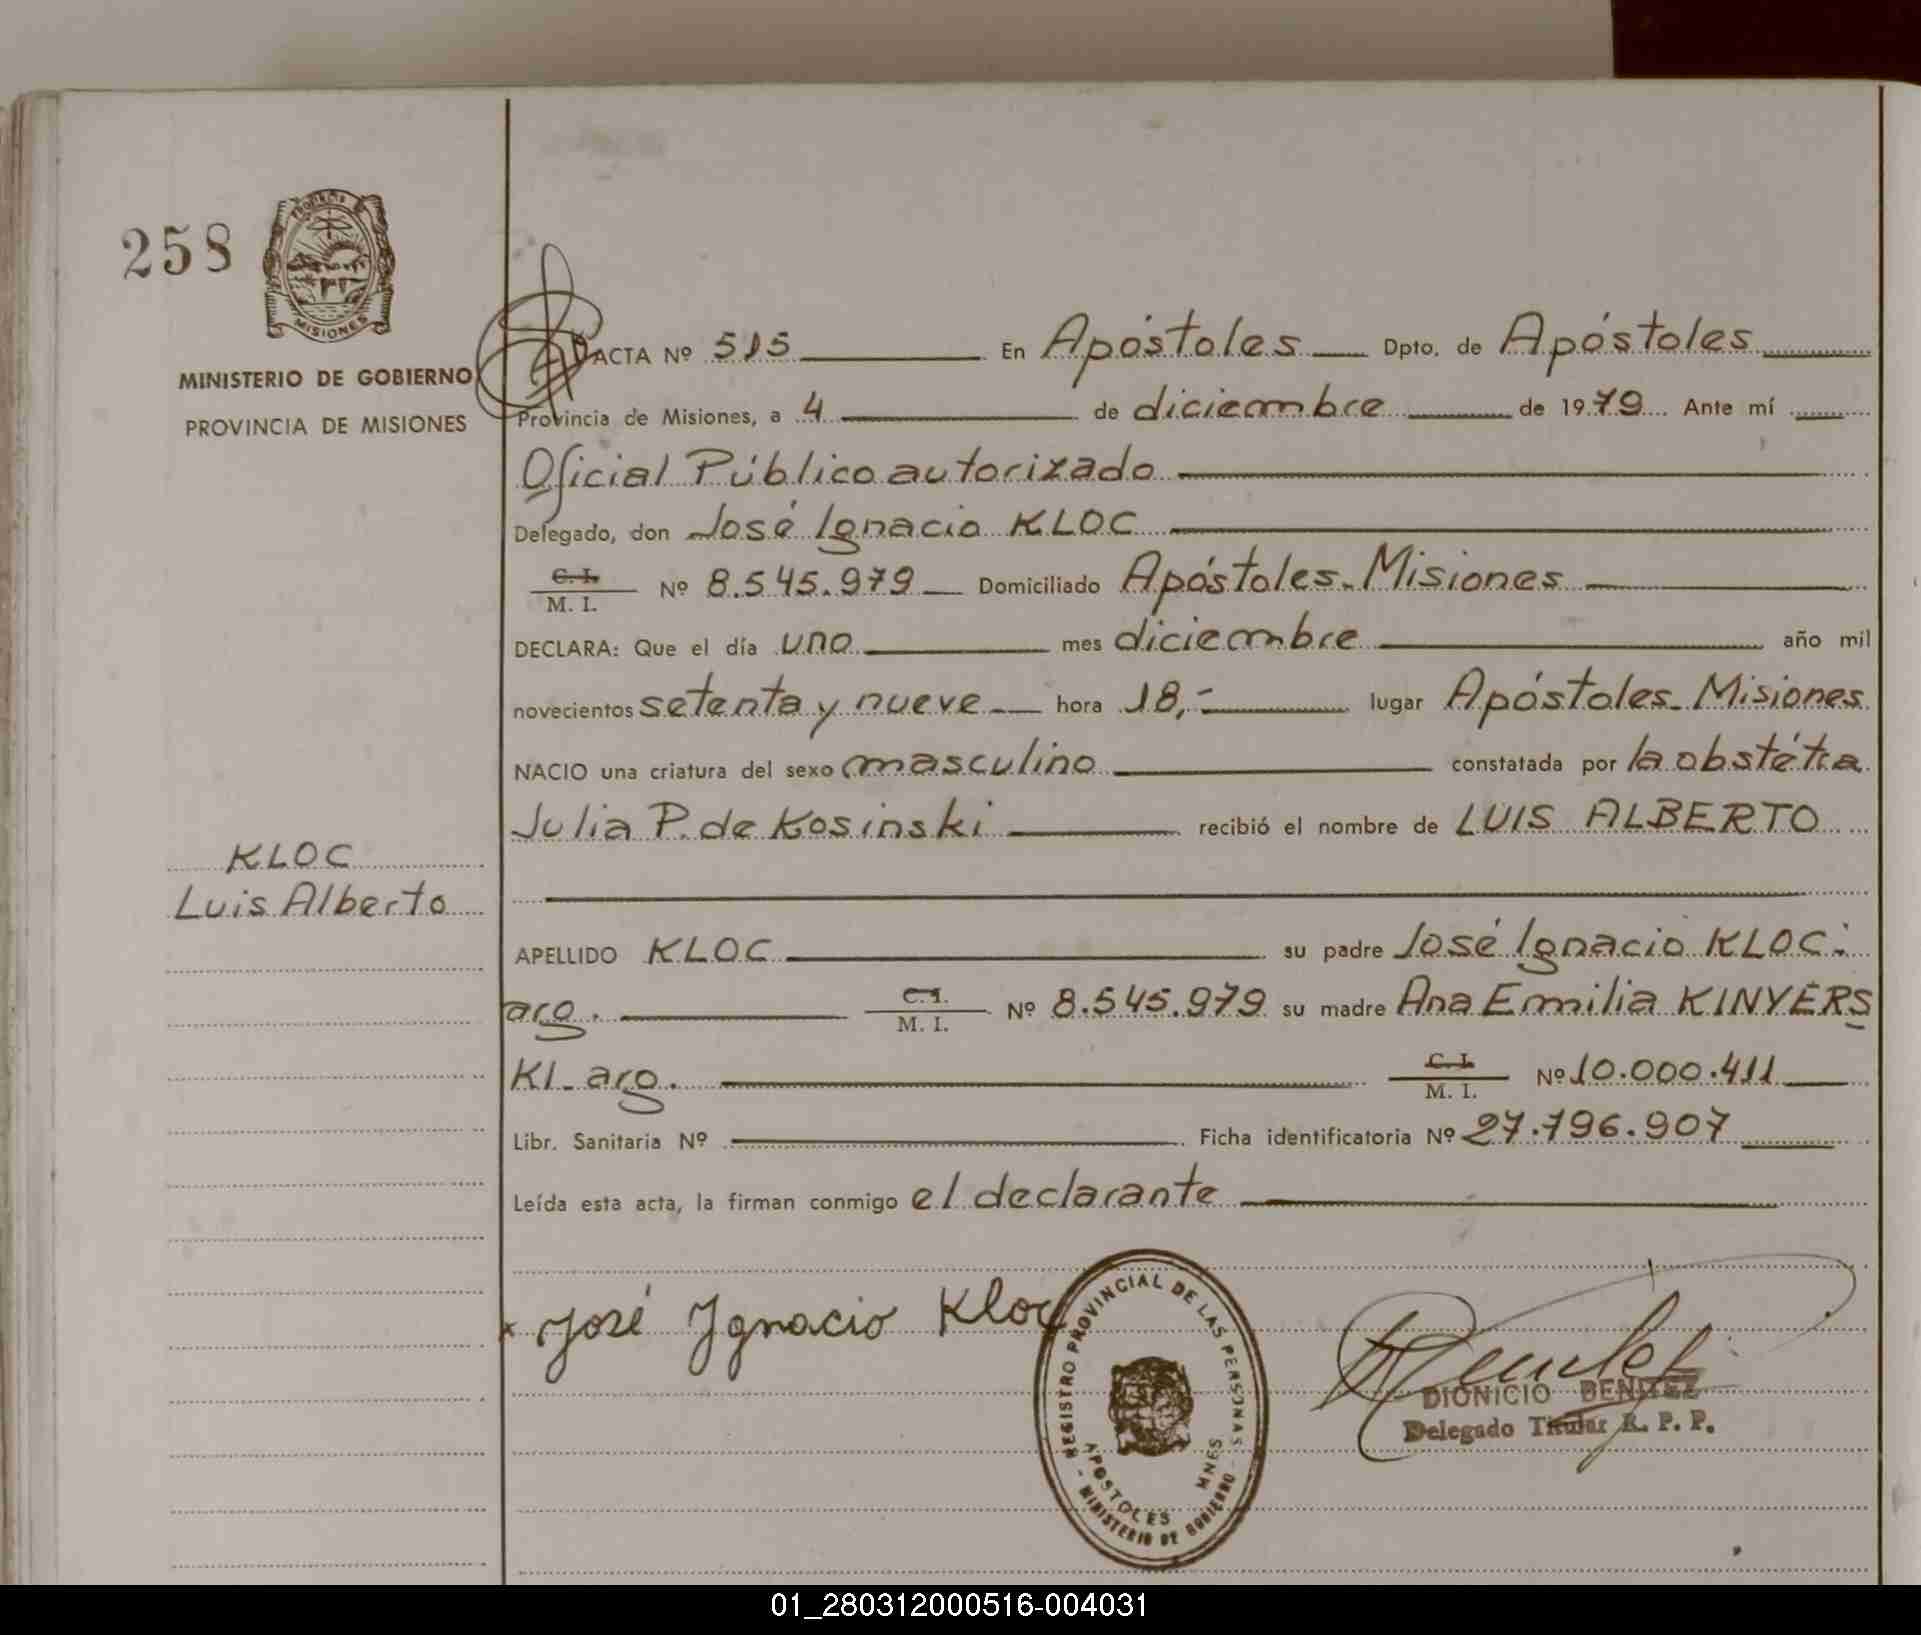 258
MISIONES
MINISTERIO DE GOBIERNO
PROVINCIA DE MISIONES
KLOC
Luis Alberto
ACTA Nº 515 En Apóstoles Dpto. de Apóstoles
Provincia de Misiones, a 4 de diciembre de 1979 Ante mí
Oficial Público autorizado
Delegado, don José Ignacio KLOC
C. I.
M. I. Nº 8.545.979 Domiciliado Apóstoles - Misiones
DECLARA: Que el día uno mes diciembre año mil
novecientos setenta y nueve hora 18,- lugar Apóstoles - Misiones
NACIO una criatura del sexo masculino constatada por la obstétra
Julia P. de Kosinski recibió el nombre de LUIS ALBERTO
APELLIDO KLOC su padre José Ignacio KLOC:
arg. C. I.
M. I. Nº 8.545.979 su madre Ana Emilia KINYERS
KI - arg. C. I.
M. I. Nº 10.000.411
Libr. Sanitaria Nº Ficha identificatoria Nº 27.796.907
Leída esta acta, la firman conmigo el declarante
x José Ignacio Kloc
REGISTRO PROVINCIAL DE LAS PERSONAS - MINISTERIO DE GOBIERNO -
APOSTOLES MNES
DIONICIO BENITEZ
Delegado Titular R. P. P.
01_280312000516-004031